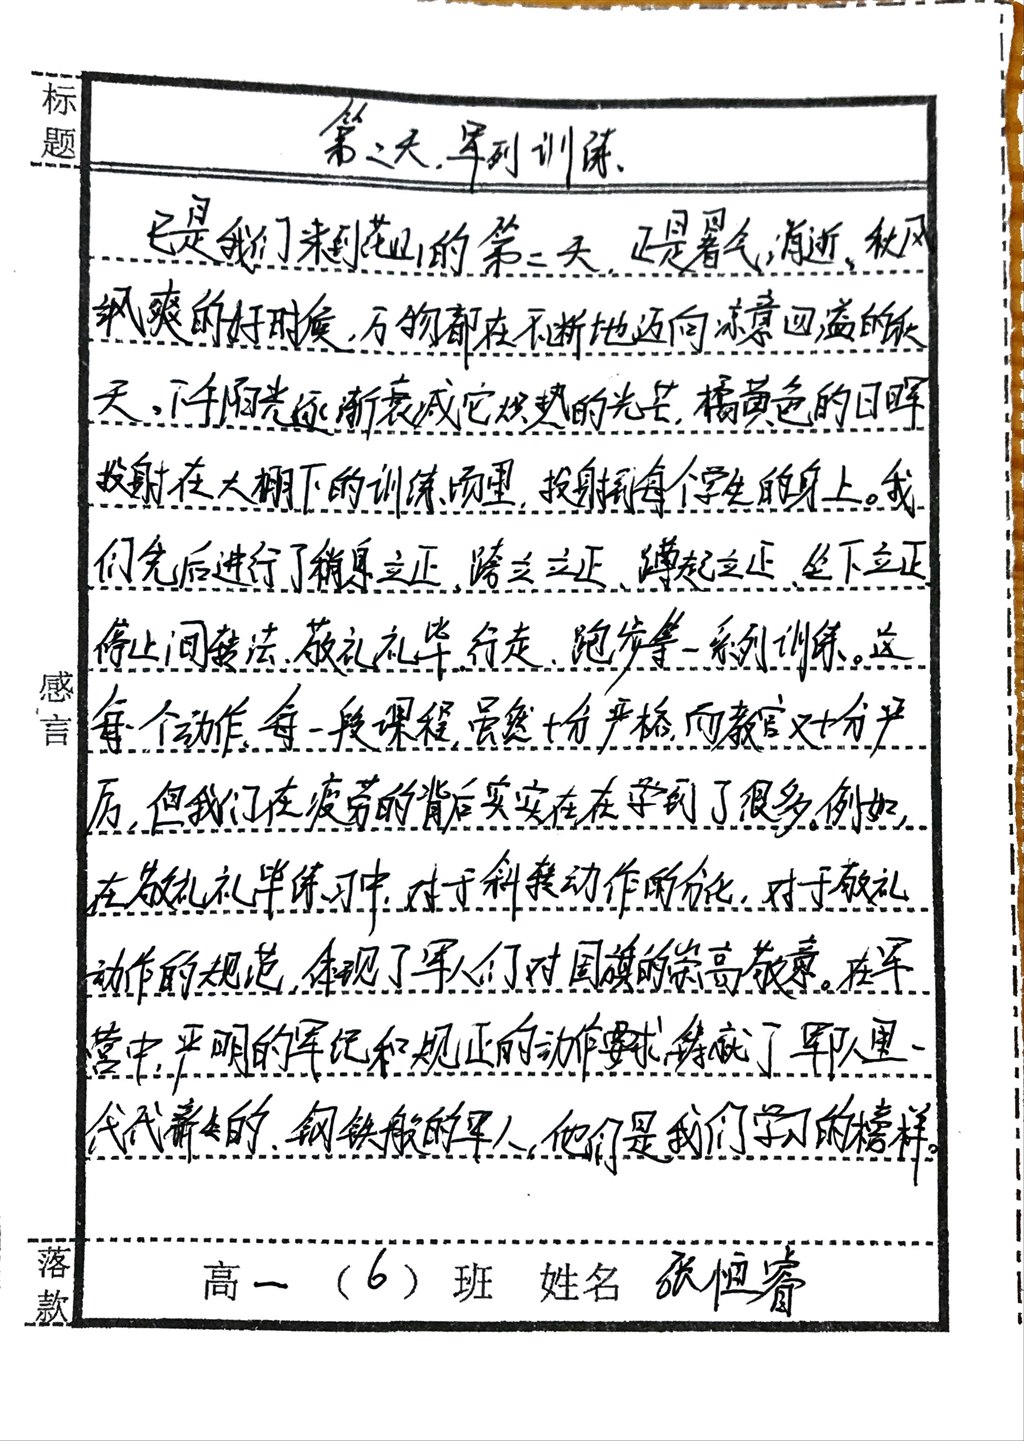 标题
第二天、军列训练、
已是我们来到花山的第二天，正是暑气消逝、秋风
飒爽的好时候，万物都在不断地迈向凉意四溢的秋
天。下午阳光逐渐衰减它炽热的光芒，橘黄色的日晖
投射在大棚下的训练场里，投射到每个学生的身上。我
们先后进行了稍息立正、跨立立正、蹲起立正、坐下立正、
停止间转法、敬礼礼毕、行走、跑步等一系列训练。这
每个动作，每一段课程，虽然十分严格，而教官又十分严
厉，但我们在疲劳的背后实实在在学到了很多，例如，
在敬礼礼毕练习中，对于斜转动作的分化，对于敬礼
动作的规范，体现了军人们对国旗的崇高敬意。在军
营中，严明的军纪和规正的动作要求，铸就了军队里一
代代新生的、钢铁般的军人，他们是我们学习的榜样。
感言
落款
高一（6）班 姓名 张恒睿